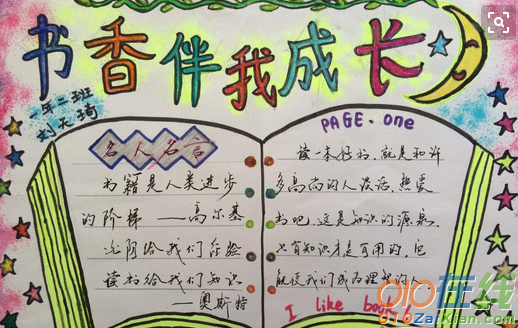 书香伴我成长
一年二班
刘天琦
名人名言
书籍是人类进步
的阶梯——高尔基
光阴给我们经验
读书给我们知识
——奥斯特
PAGE.one
读一本好书,就是和许
多高尚的人谈话,热爱
书吧,这是知识的源泉,
只有知识才是有用的,它
能使我们成为理智的人。
I like book
010在线
010ZaiXian.com